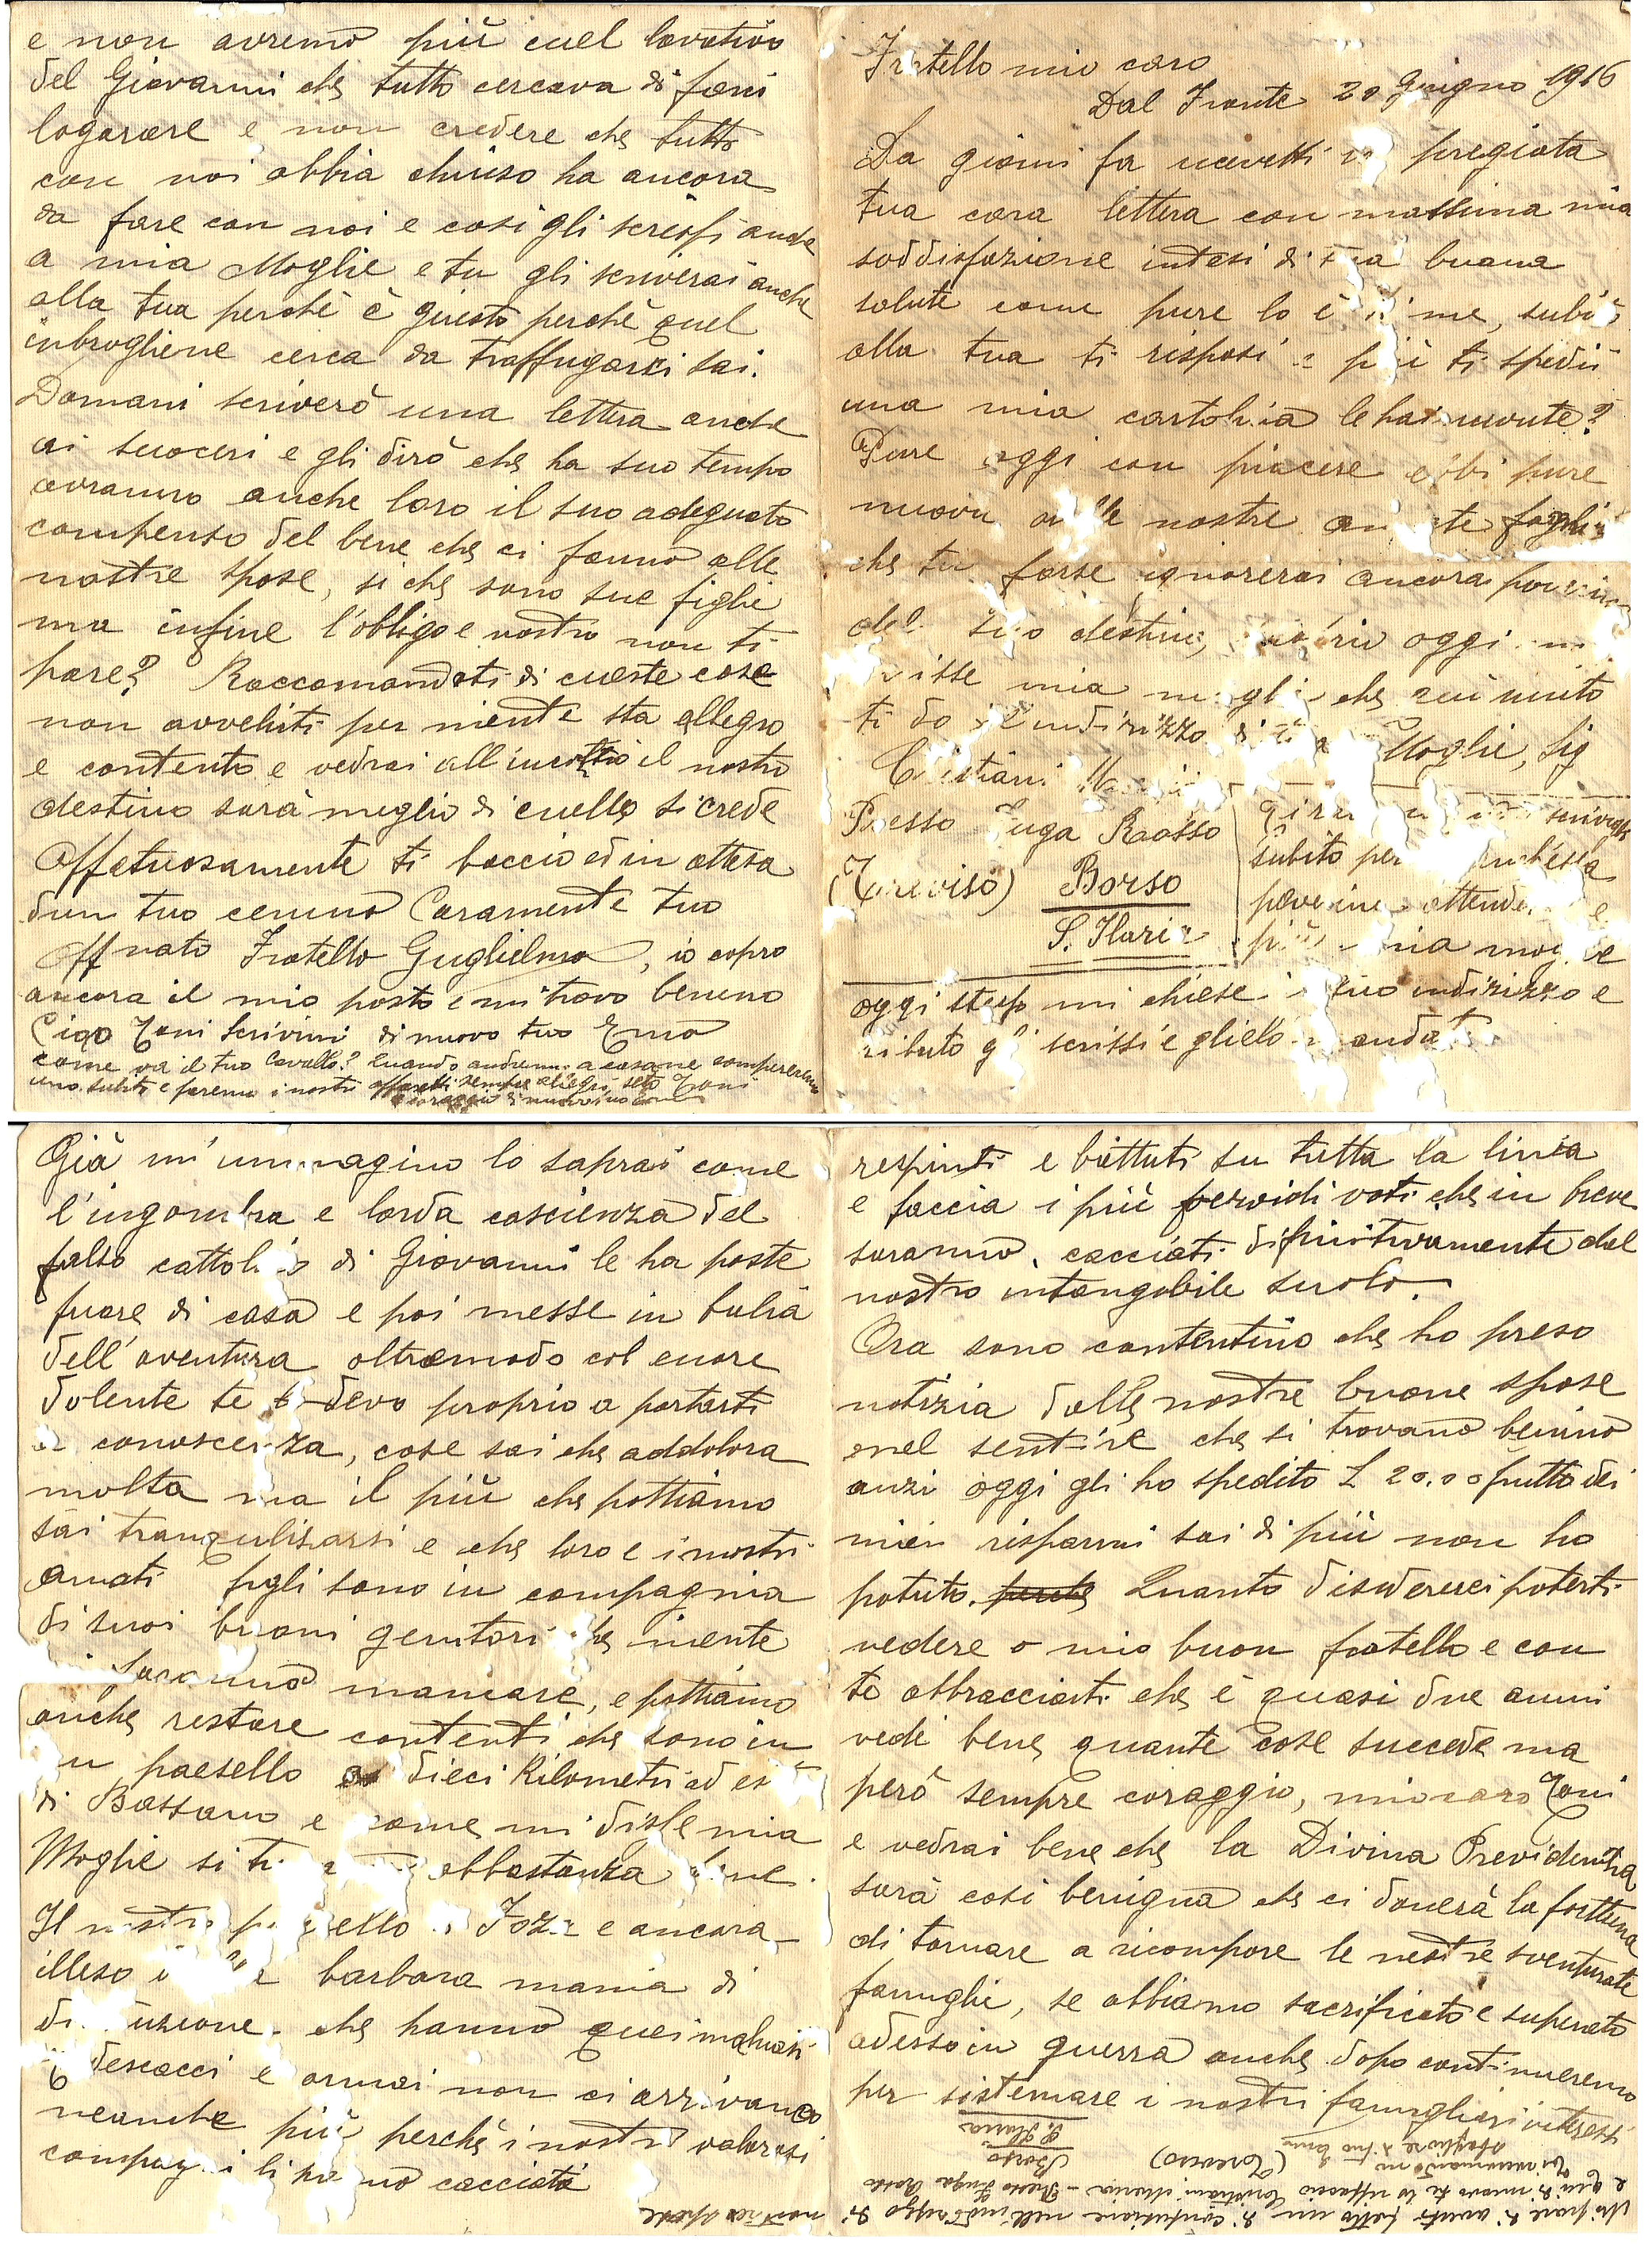 Fratello mio caro
Dal Fronte 20 Giugno 1916
Da giorni fa ricevetti pregiata
tua cara lettera con massima mia
soddisfazione intesi di tua buona
salute come pure lo è di me, subito
alla tua ti risposi e più ti spedii
una mia cartolina le hai ricevute?
Pure oggi con piacere ebbi pure
nuova nostre
che tu forse ignorerai ancora
del suo destino, oggi mi
scrisse mia moglie che
ti do l'indirizzo di tua Moglie, Sig
Cristiani
Presso Fuga Rosso
(Treviso) Borso
S. Ilaria
scrivegli
subito anch'essa
poverina attende e
più mia moglie
oggi stesso mi chiese il tuo indirizzo e
subito gli scrissi e gliello mandato
Già m'immagino lo saprai come
l'ingombra e lorda coscienza del
falso cattolico di Giovanni le ha poste
fuore di casa e poi messe in balia
dell'aventura oltremodo col cuore
dolente te devo proprio a portarti
a conoscenza, cose sai che addolora
molto ma il più che possiamo
sai tranquilisarsi e che loro e i nostri
amati figli sono in compagnia
di suoi buoni genitori che niente
faranno mancare, e possiamo
anche restare contenti che sono in
un paesello dieci Kilometri ad est
di Bassano e come mi disse mia
Moglie si abbastanza bene.
Il nostro paesello Foza e ancora
illeso barbara mania di
distruzione che hanno quei malvasi
Tedescacci e ormai non ci arrivano
neanche più perchè i nostri valorosi
compagni li hanno cacciati
respinti e battuti su tutta la linea
e faccia i più fervidi voti che in breve
saranno cacciati difinitivamente dal
nostro intangibile suolo.
Ora sono contentino che ho preso
notizia dalle nostre buone spose
nel sentire che si trovano benino
anzi oggi gli ho spedito L 20.00 frutto dei
miei risparmi sai di più non ho
potuto. perchè Quanto disidererei poterti
vedere o mio buon fratello e con
te abbracciarti che è quasi due anni
vedi bene quante cose succede ma
però sempre coraggio, mio caro Toni
e vedrai bene che la Divina Previdenza
sarà così benigna che ci donerà la fortuna
di tornare a ricompore le nostre sventurate
famiglie, se abbiamo sacrificato e superato
adesso in guerra anche dopo continueremo
per sistemare i nostri famigliari interessi
Mi pare d'avento fatto un di confusione nell'indirizzo di
e qui di nuovo te lo rifaccio Cristiani Maria - Presso Fuga Rosso
(Treviso) Borso
S. Ilaria
nostre spose
e non avremo più cuel lavativo
del Giovanni che tutto cercava di farci
logorare e non credere che tutto
con noi abbia chiuso ha ancora
da fare con noi e così gli scrissi anche
a mia Moglie e tu gli scriverai anche
alla tua perchè è giusto perchè quel
inbroglione cerca da traffugarci sai.
Domani scriverò una lettera anche
ai suoceri e gli dirò che ha suo tempo
avranno anche loro il suo adeguato
compenso del bene che ci fanno alle
nostre spose, si che sono sue figlie
ma infine l'obligo e nostro non ti
pare? Raccomandati di cueste cose
non avvelirti per niente sta allegro
e contento e vedrai all'incontro il nostro
destino sarà meglio di cuello si crede
Affetuosamente ti baccio ed in attesa
dun tuo cenno Caramente tuo
Aff nato Fratello Guglielmo, io copro
ancora il mio posto e mi trovo benino
Ciao Toni Scrivimi di nuovo tuo Emo
come va il tuo Cavallo? Quando andremo a casa ne compereremo
uno subito e faremo i nostri affaretti sempre allegri Toni
coraggio di nuovo tuo